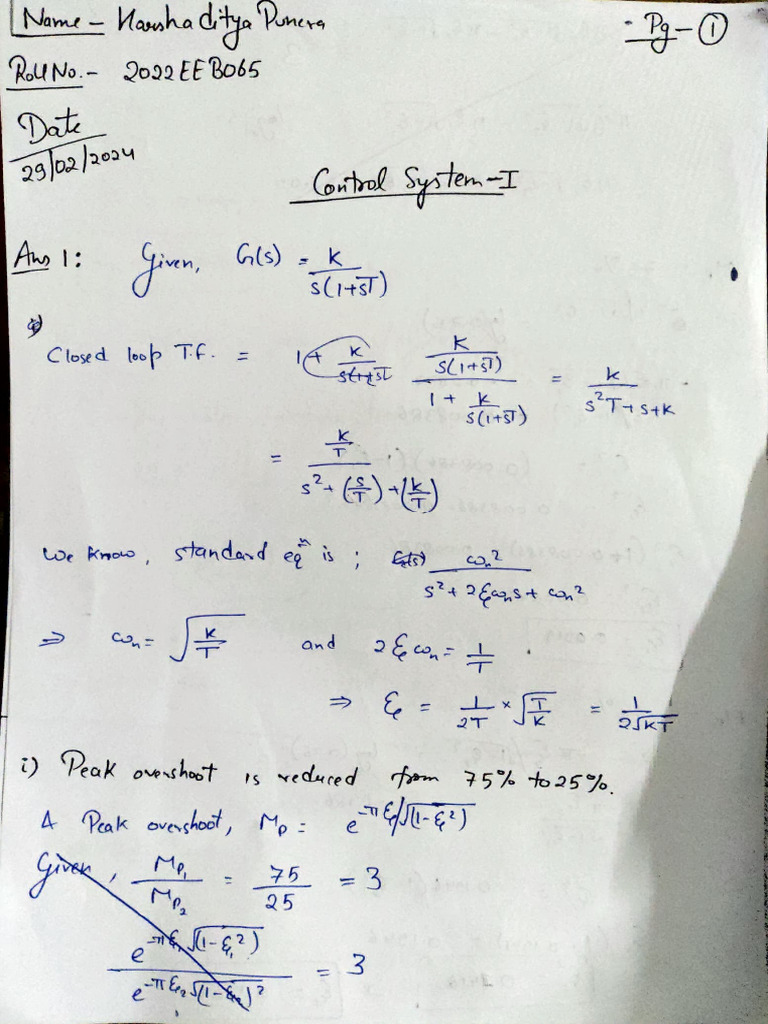 Name – Harshaditya Punera
Pg – ①
Roll No. – 2022EEB065
Date
29/02/2024
Control System – I
Ans 1: Given, G(s) = K / s(1+sT)
Closed loop T.f. = 1 + K / s(1+sT) (K / s(1+sT)) / (1 + K / s(1+sT)) = K / s²T + s + K
= (K/T) / s² + (s/T) + (K/T)
We know, standard eqⁿ is ; G(s) ωn² / s² + 2ξωns + ωn²
⇒ ωn = √(K/T) and 2ξωn = 1/T
⇒ ξ = 1/2T × √(T/K) = 1 / 2√KT
i) Peak overshoot is reduced from 75% to 25%.
A Peak overshoot, Mp = e^-πξ/√(1-ξ²)
Given, Mp₁ / Mp₂ = 75 / 25 = 3
e^-πξ₁√(1-ξ₁²) / e^-πξ₂√(1-ξ₂)² = 3